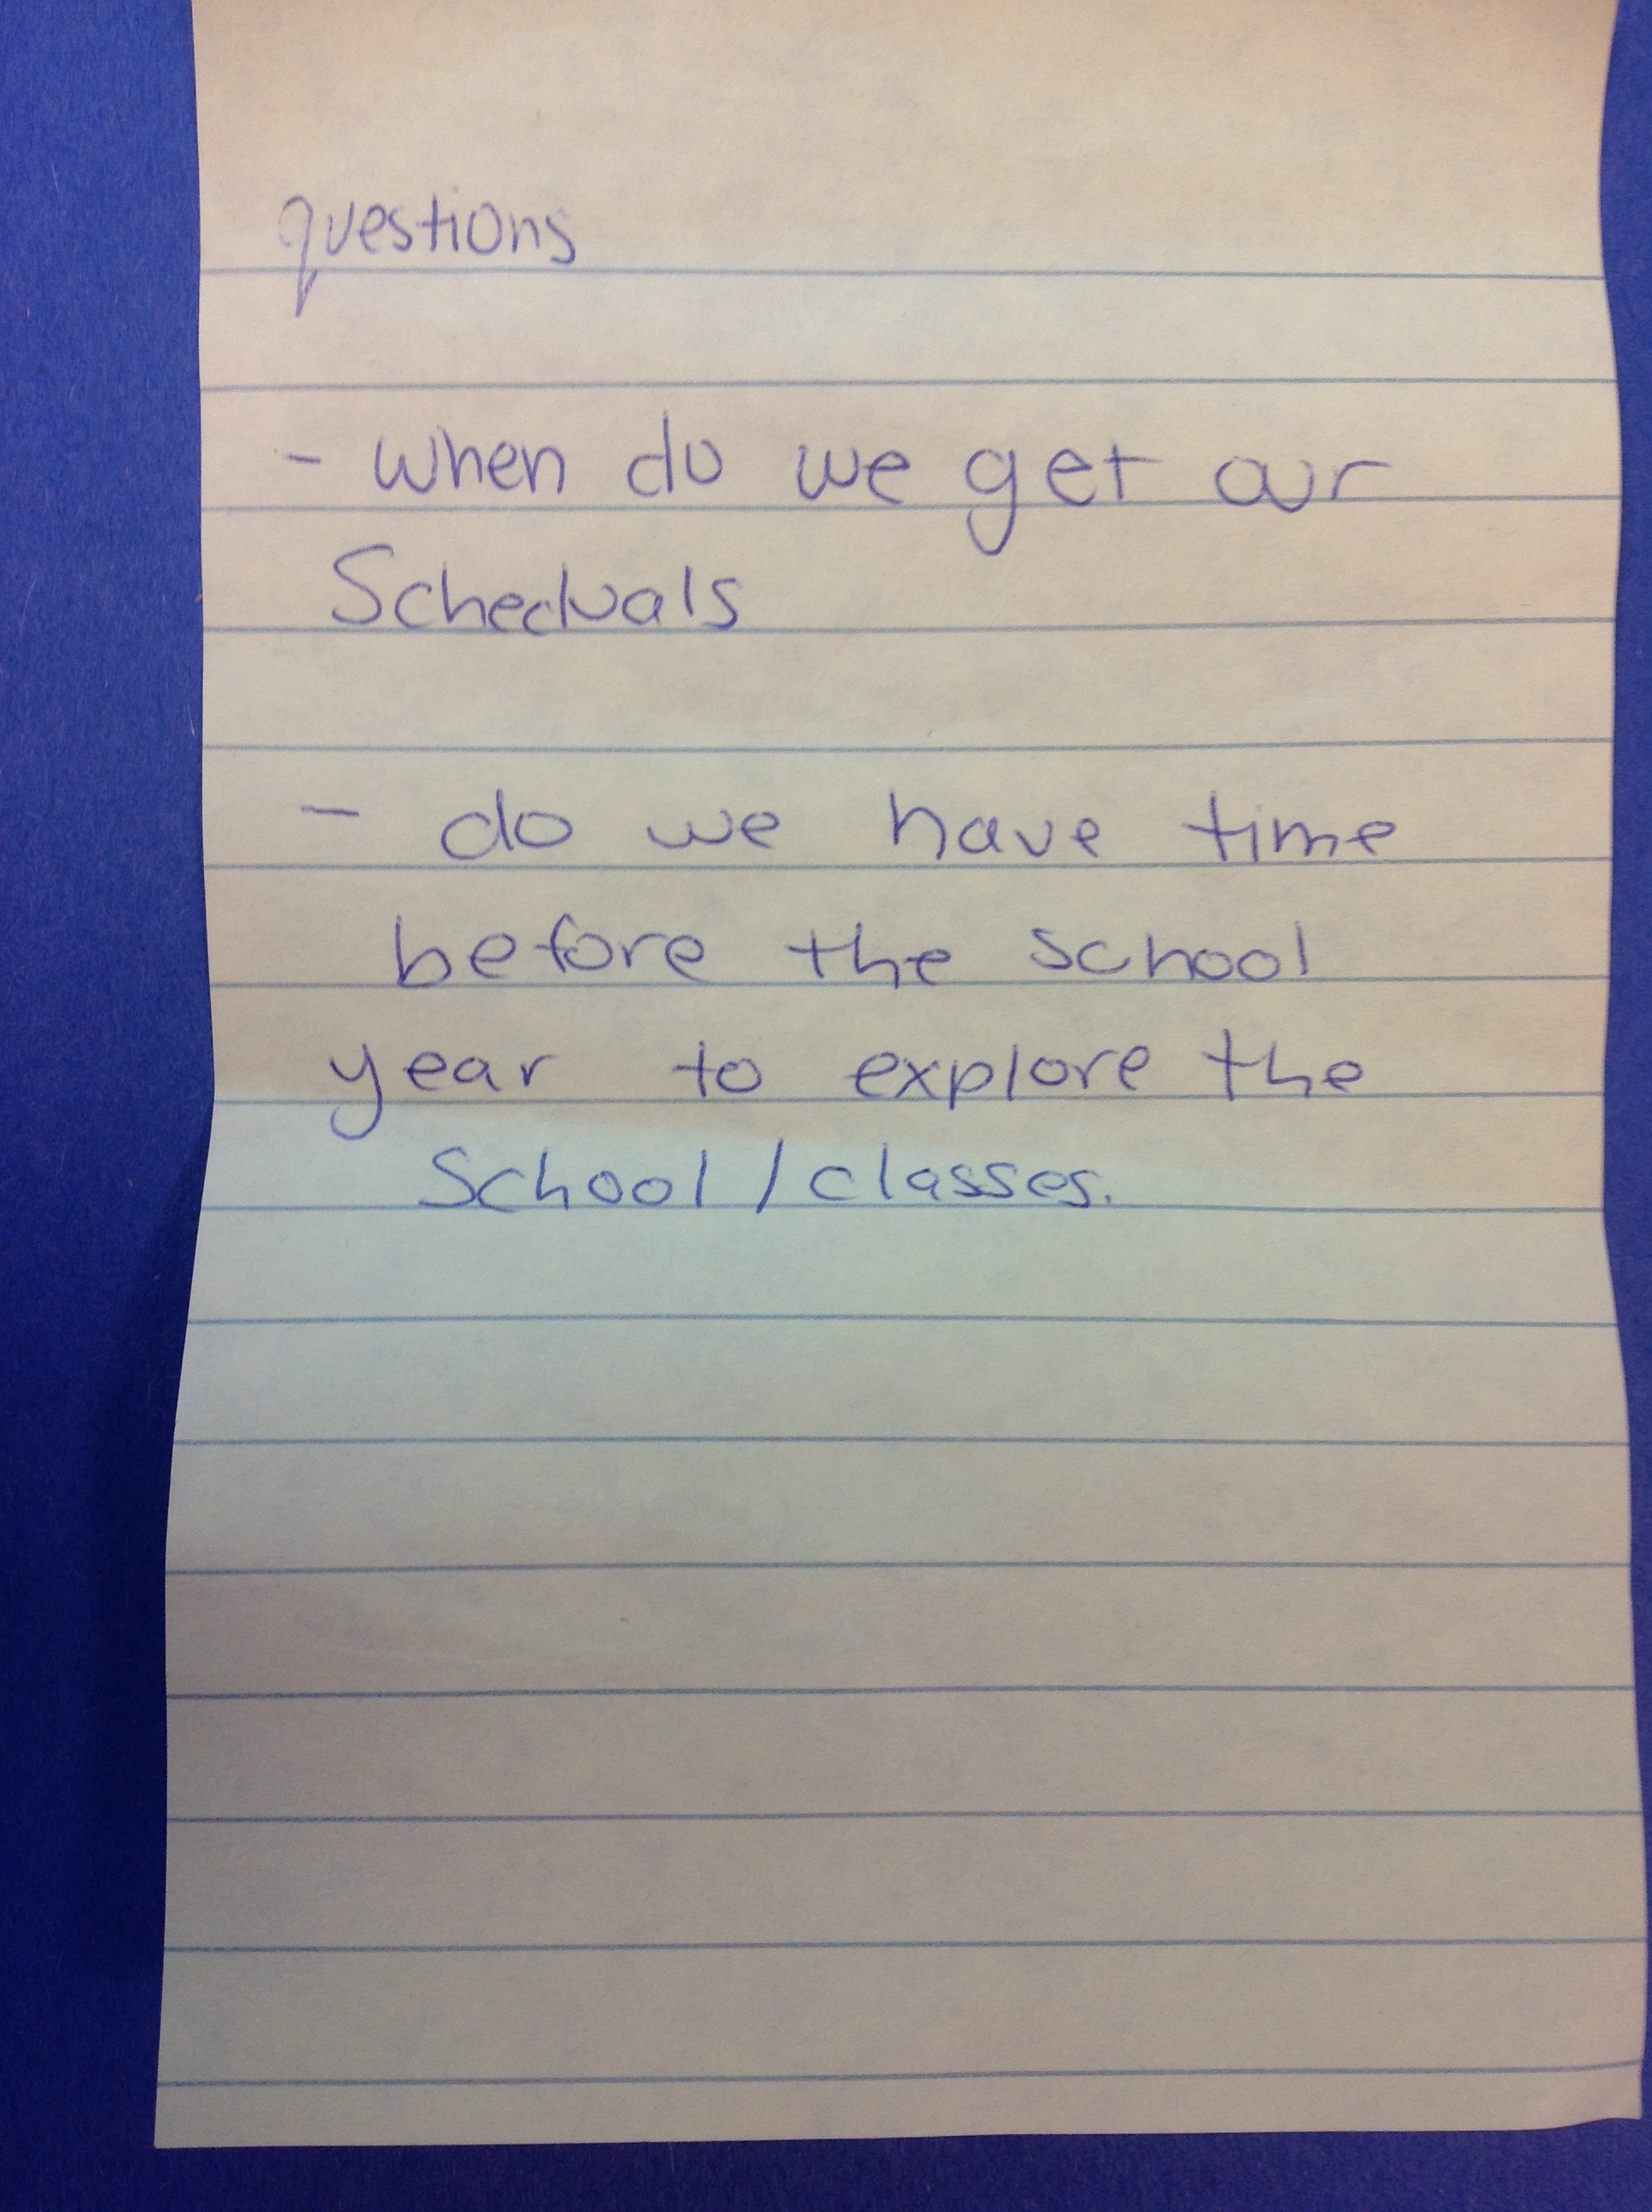 questions
- when do we get our
Scheduals
- do we have time
before the school
year to explore the
School / classes.